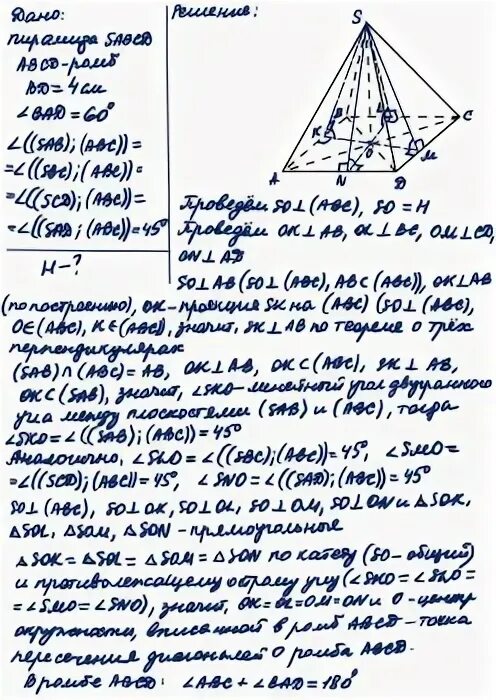 Дано:
пирамида SABCD
ABCD-ромб
BD=4см
∠BAD=60°
∠((SAB);(ABC))=
=∠((SBC);(ABC))=
=∠((SCD);(ABC))=
=∠((SAD;(ABC))=45°
H-?
Решение:
S
B
L
C
K
O
M
A
N
D
Проведём SO⊥(ABC), SO=H
Проведём OK⊥AB, OL⊥BC, OM⊥CD,
ON⊥AD
SO⊥AB(SO⊥(ABC), ABC(ABC)), OK⊥AB
(по построению), OK-проекция SK на (ABC) (SO⊥(ABC),
O∈(ABC), K∈(ABC)), значит, SK⊥AB по теореме о трёх
перпендикулярах
(SAB)∩(ABC)=AB, OK⊥AB, OK⊂(ABC), SK⊥AB,
OK⊂(SAB), значит, ∠SKO-линейный угол двугранного
угла между плоскостями (SAB) и (ABC), тогда
∠SKO=∠((SAB);(ABC))=45°
Аналогично, ∠SLO=∠((SBC);(ABC))=45°, ∠SMO=
=∠((SCD);(ABC))=45°, ∠SNO=∠((SAD);(ABC))=45°
SO⊥(ABC), SO⊥OK, SO⊥OL, SO⊥OM, SO⊥ON и △SOK,
△SOL, △SOM, △SON-прямоугольные
△SOK=△SOL=△SOM=△SON по катету (SO-общий)
и противолежащему острому углу (∠SKO=∠SLO=
=∠SMO=∠SNO), значит, OK=OL=OM=ON и O-центр
окружности, вписанной в ромб ABCD-точка
пересечения диагоналей O ромба ABCD.
В ромбе ABCD: ∠ABC+∠BAD=180°